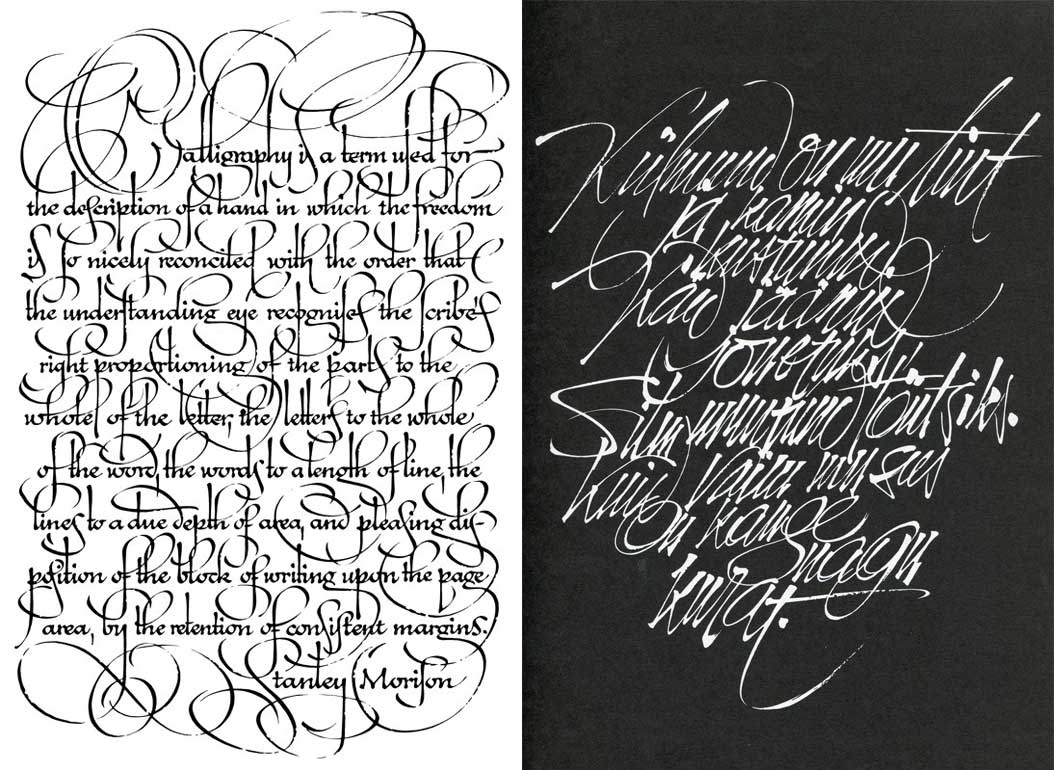 Calligraphy is a term used for
the description of a hand in which the freedom
is so nicely reconciled with the order that
the understanding eye recognises the scribe's
right proportioning of the parts to the
wholes of the letter; the letters to the whole
of the word, the words to a length of line, the
lines to a due depth of area, and pleasing dis-
position of the block of writing upon the page
area, by the retention of consistent margins.
Stanley Morison
Külmund on mu tint
ja kamin
kustunud.
Silm
Kuid vaim mu sees
on kange
nagu
kurat.